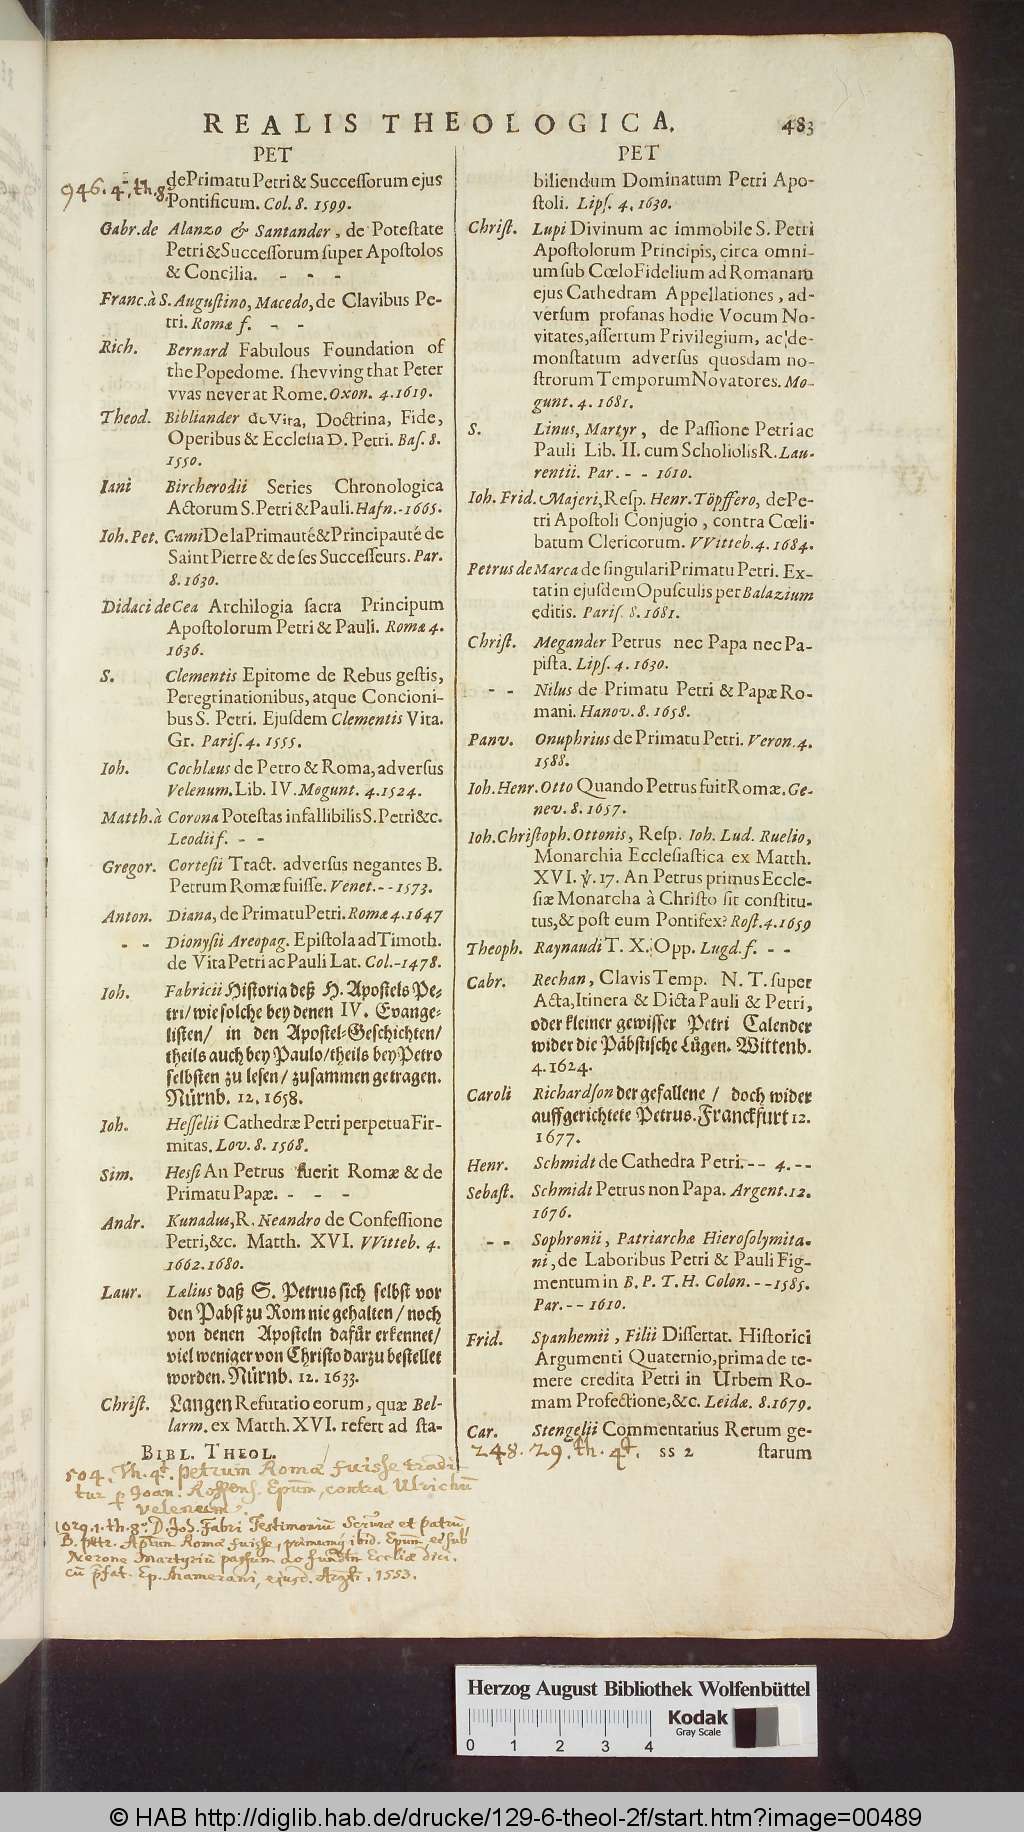 REALIS THEOLOGICA. 483
PET
946. 4. th. 8.
de Primatu Petri & Successorum ejus
Pontificum. Col. 8. 1599.
Gabr. de Alanzo & Santander, de Potestate
Petri & Successorum super Apostolos
& Concilia. - - -
Franc. à S. Augustino, Macedo, de Clavibus Pe-
tri. Romæ f. - -
Rich. Bernard Fabulous Foundation of
the Popedome. shevving that Peter
vvas never at Rome. Oxon. 4. 1619.
Theod. Bibliander de Vita, Doctrina, Fide,
Operibus & Ecclesia D. Petri. Bas. 8.
1550.
Iani Bircherodii Series Chronologica
Actorum S. Petri & Pauli. Hafn. - 1665.
Ioh. Pet. Cami De la Primauté & Principauté de
Saint Pierre & de ses Successeurs. Par.
8. 1630.
Didaci de Cea Archilogia sacra Principum
Apostolorum Petri & Pauli. Romæ 4.
1636.
S. Clementis Epitome de Rebus gestis,
Peregrinationibus, atque Concioni-
bus S. Petri. Ejusdem Clementis Vita.
Gr. Paris. 4. 1555.
Ioh. Cochlæus de Petro & Roma, adversus
Velenum. Lib. IV. Mogunt. 4. 1524.
Matth. à Corona Potestas infallibilis S. Petri &c.
Leodii f. - -
Gregor. Cortesii Tract. adversus negantes B.
Petrum Romæ fuisse. Venet. - - 1573.
Anton. Diana, de Primatu Petri. Romæ 4. 1647
- - Dionysii Areopag. Epistola ad Timoth.
de Vita Petri ac Pauli Lat. Col. - 1478.
Ioh. Fabricii Historia deß H. Apostels Pe-
tri / wie solche bey denen IV. Evange-
listen / in den Apostel-Geschichten /
theils auch bey Paulo / theils bey Petro
selbsten zu lesen / zusammen getragen.
Nürnb. 12. 1658.
Ioh. Hesselii Cathedræ Petri perpetua Fir-
mitas. Lov. 8. 1568.
Sim. Hessi An Petrus fuerit Romæ & de
Primatu Papæ. - - -
Andr. Kunadus, R. Neandro de Confessione
Petri, &c. Matth. XVI. VVitteb. 4.
1662. 1680.
Laur. Lælius daß S. Petrus sich selbst vor
den Pabst zu Rom nie gehalten / noch
von denen Aposteln dafür erkennet /
viel weniger von Christo darzu bestellet
worden. Nürnb. 12. 1633.
Christ. Langen Refutatio eorum, quæ Bel-
larm. ex Matth. XVI. refert ad sta-
BIBL. THEOL.
504. Th. 4t. petrum Romæ fuisse tradi
tur p Joan. Roffens. Epum, contra Ulrichū
velenum.
1029. 1. th. 8o. D. Joh. Fabri Testimoniū et patrū,
B. petr. Romæ fuisse, ibid. Epum, et sub
Nerone Martyriū passum Eccliæ dici.
cū præfat. Ep. Mamerani, ejusd. 1553.
PET
biliendum Dominatum Petri Apo-
stoli. Lips. 4. 1630.
Christ. Lupi Divinum ac immobile S. Petri
Apostolorum Principis, circa omni-
um sub Cœlo Fidelium ad Romanam
ejus Cathedram Appellationes, ad-
versum profanas hodie Vocum No-
vitates, assertum Privilegium, ac de-
monstatum adversus quosdam no-
strorum Temporum Novatores. Mo-
gunt. 4. 1681.
S. Linus, Martyr, de Passione Petri ac
Pauli Lib. II. cum Scholiolis R. Lau-
rentii. Par. - - 1610.
Ioh. Frid. Majeri, Resp. Henr. Töpffero, de Pe-
tri Apostoli Conjugio, contra Cœli-
batum Clericorum. VVitteb. 4. 1684.
Petrus de Marca de singulari Primatu Petri. Ex-
tat in ejusdem Opusculis per Balazium
editis. Paris. 8. 1681.
Christ. Megander Petrus nec Papa nec Pa-
pista. Lips. 4. 1630.
- - Nilus de Primatu Petri & Papæ Ro-
mani. Hanov. 8. 1658.
Panv. Onuphrius de Primatu Petri. Veron. 4.
1588.
Ioh. Henr. Otto Quando Petrus fuit Romæ. Ge-
nev. 8. 1657.
Ioh. Christoph. Ottonis, Resp. Ioh. Lud. Ruelio,
Monarchia Ecclesiastica ex Matth.
XVI. ℣. 17. An Petrus primus Eccle-
siæ Monarcha à Christo sit constitu-
tus, & post eum Pontifex? Rost. 4. 1659
Theoph. Raynaudi T. X. Opp. Lugd. f. - -
Cabr. Rechan, Clavis Temp. N. T. super
Acta, Itinera & Dicta Pauli & Petri,
oder kleiner gewisser Petri Calender
wider die Päbstische Lügen. Wittenb.
4. 1624.
Caroli Richardson der gefallene / doch wider
auffgerichtete Petrus. Franckfurt 12.
1677.
Henr. Schmidt de Cathedra Petri. - - 4. - -
Sebast. Schmidt Petrus non Papa. Argent. 12.
1676.
- - Sophronii, Patriarchæ Hierosolymita-
ni, de Laboribus Petri & Pauli Fig-
mentum in B. P. T. H. Colon. - - 1585.
Par. - - 1610.
Frid. Spanhemii, Filii Dissertat. Historici
Argumenti Quaternio, prima de te-
mere credita Petri in Urbem Ro-
mam Profectione, &c. Leidæ. 8. 1679.
Car. Stengelii Commentarius Rerum ge-
248. 29. th. 4t. ss 2 starum
Herzog August Bibliothek Wolfenbüttel
0 1 2 3 4
Kodak
Gray Scale
© HAB http://diglib.hab.de/drucke/129-6-theol-2f/start.htm?image=00489